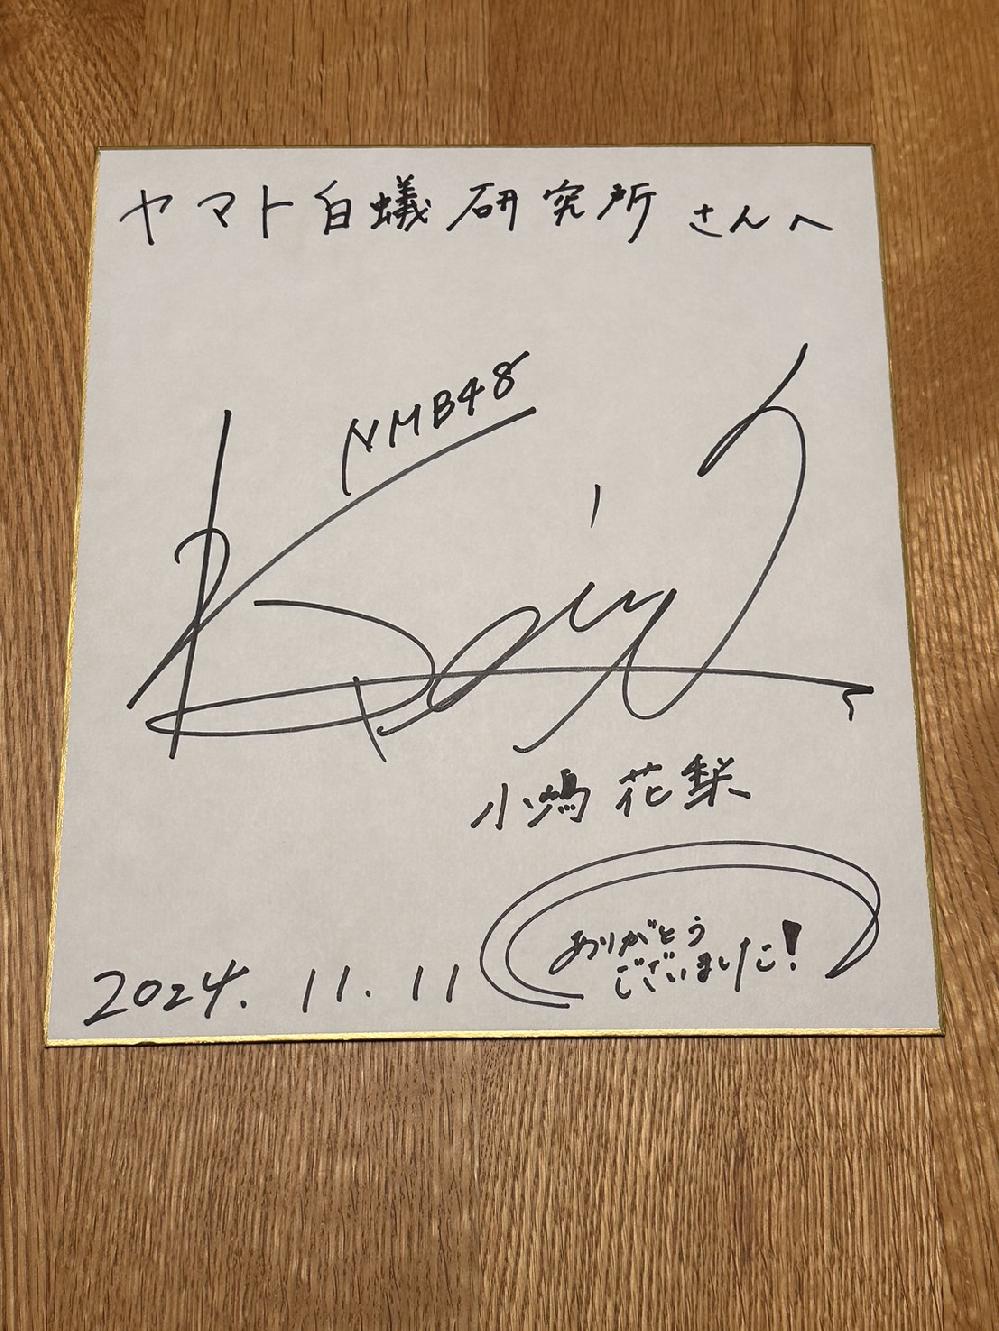 ヤマト白蟻研究所さんへ
NMB48
小嶋花梨
ありがとう
ございました!
2024.11.11